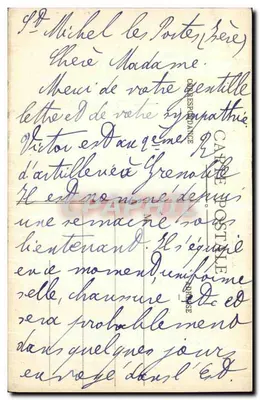 St Michel les Portes (Isère)
Chère Madame.
Merci de votre gentille
lettre et de votre sympathie
Victor est au 2eme R
d'artillerie à Grenoble
Il est nommé depuis
une semaine sous
lieutenant. Il s'équipe
en ce moment uniforme
selle, chaussure etc et
sera probablement
dans quelques jours
envoyé dans l'Est.
CARTE POSTALE
CORRESPONDANCE